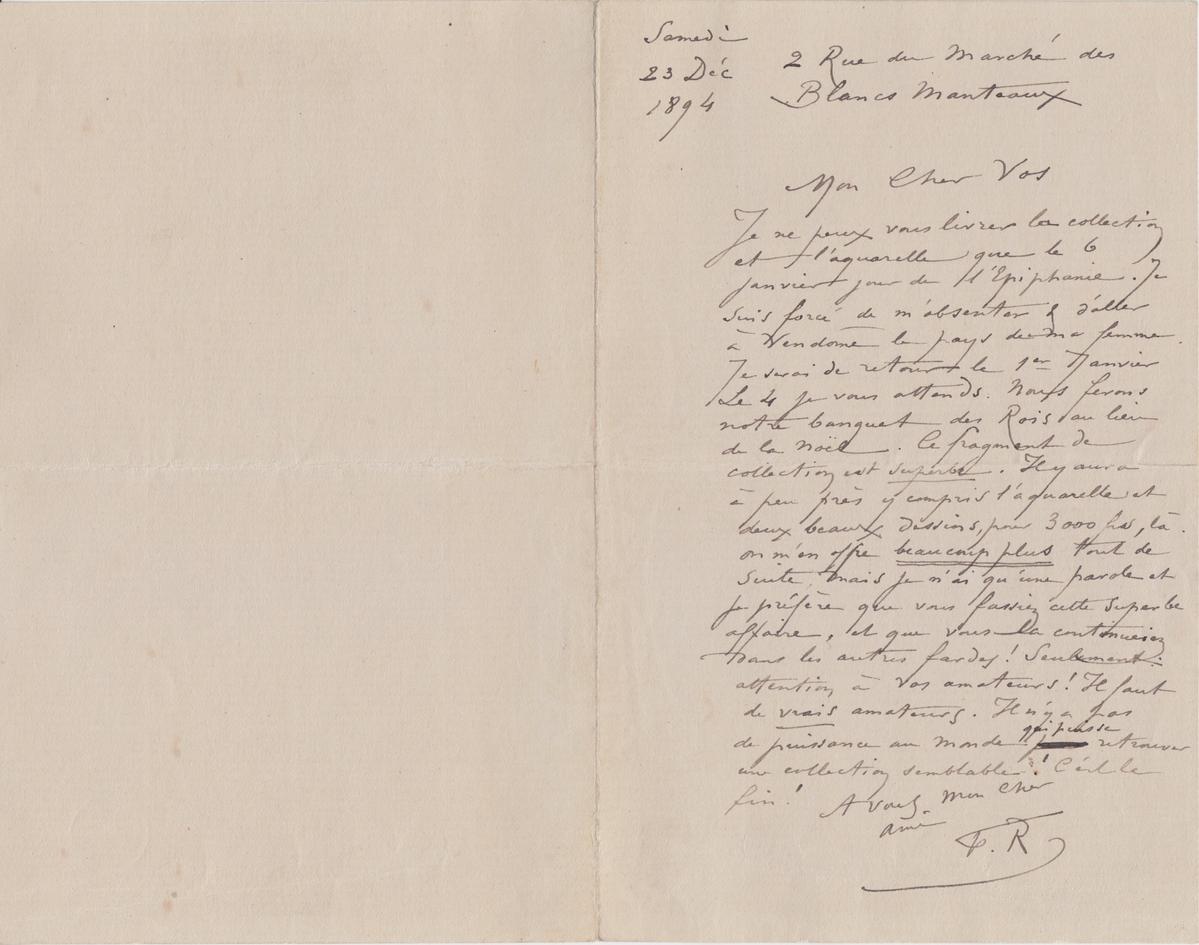 Samedi
23 Déc
1894
2 Rue du Marché des
Blancs Manteaux
Mon Cher Vos
Je ne peux vous livrer la collection
et l'aquarelle que le 6
janvier jour de l'Epiphanie. Je
suis forcé de m'absenter & d'aller
à Vendome le pays de ma femme.
Je serai de retour le 1er Janvier
Le 4 je vous attends. Nous ferons
notre banquet des Rois au lieu
de la Noël. Ce fragment de
collection est superbe. Il y aura
à peu près y compris l'aquarelle et
deux beaux dessins, pour 3000 frs, là.
on m'en offre beaucoup plus tout de
suite, mais je n'ai qu'une parole et
je préfère que vous fassiez cette superbe
affaire, et que vous la continuiez
dans les autres fardes! Seulement:
attention à vos amateurs! Il faut
de vrais amateurs. Il n'y a pas
de puissance au monde qui puisse retrouver
une collection semblable! C'est la
fin!
A vous, mon cher
ami
F. R